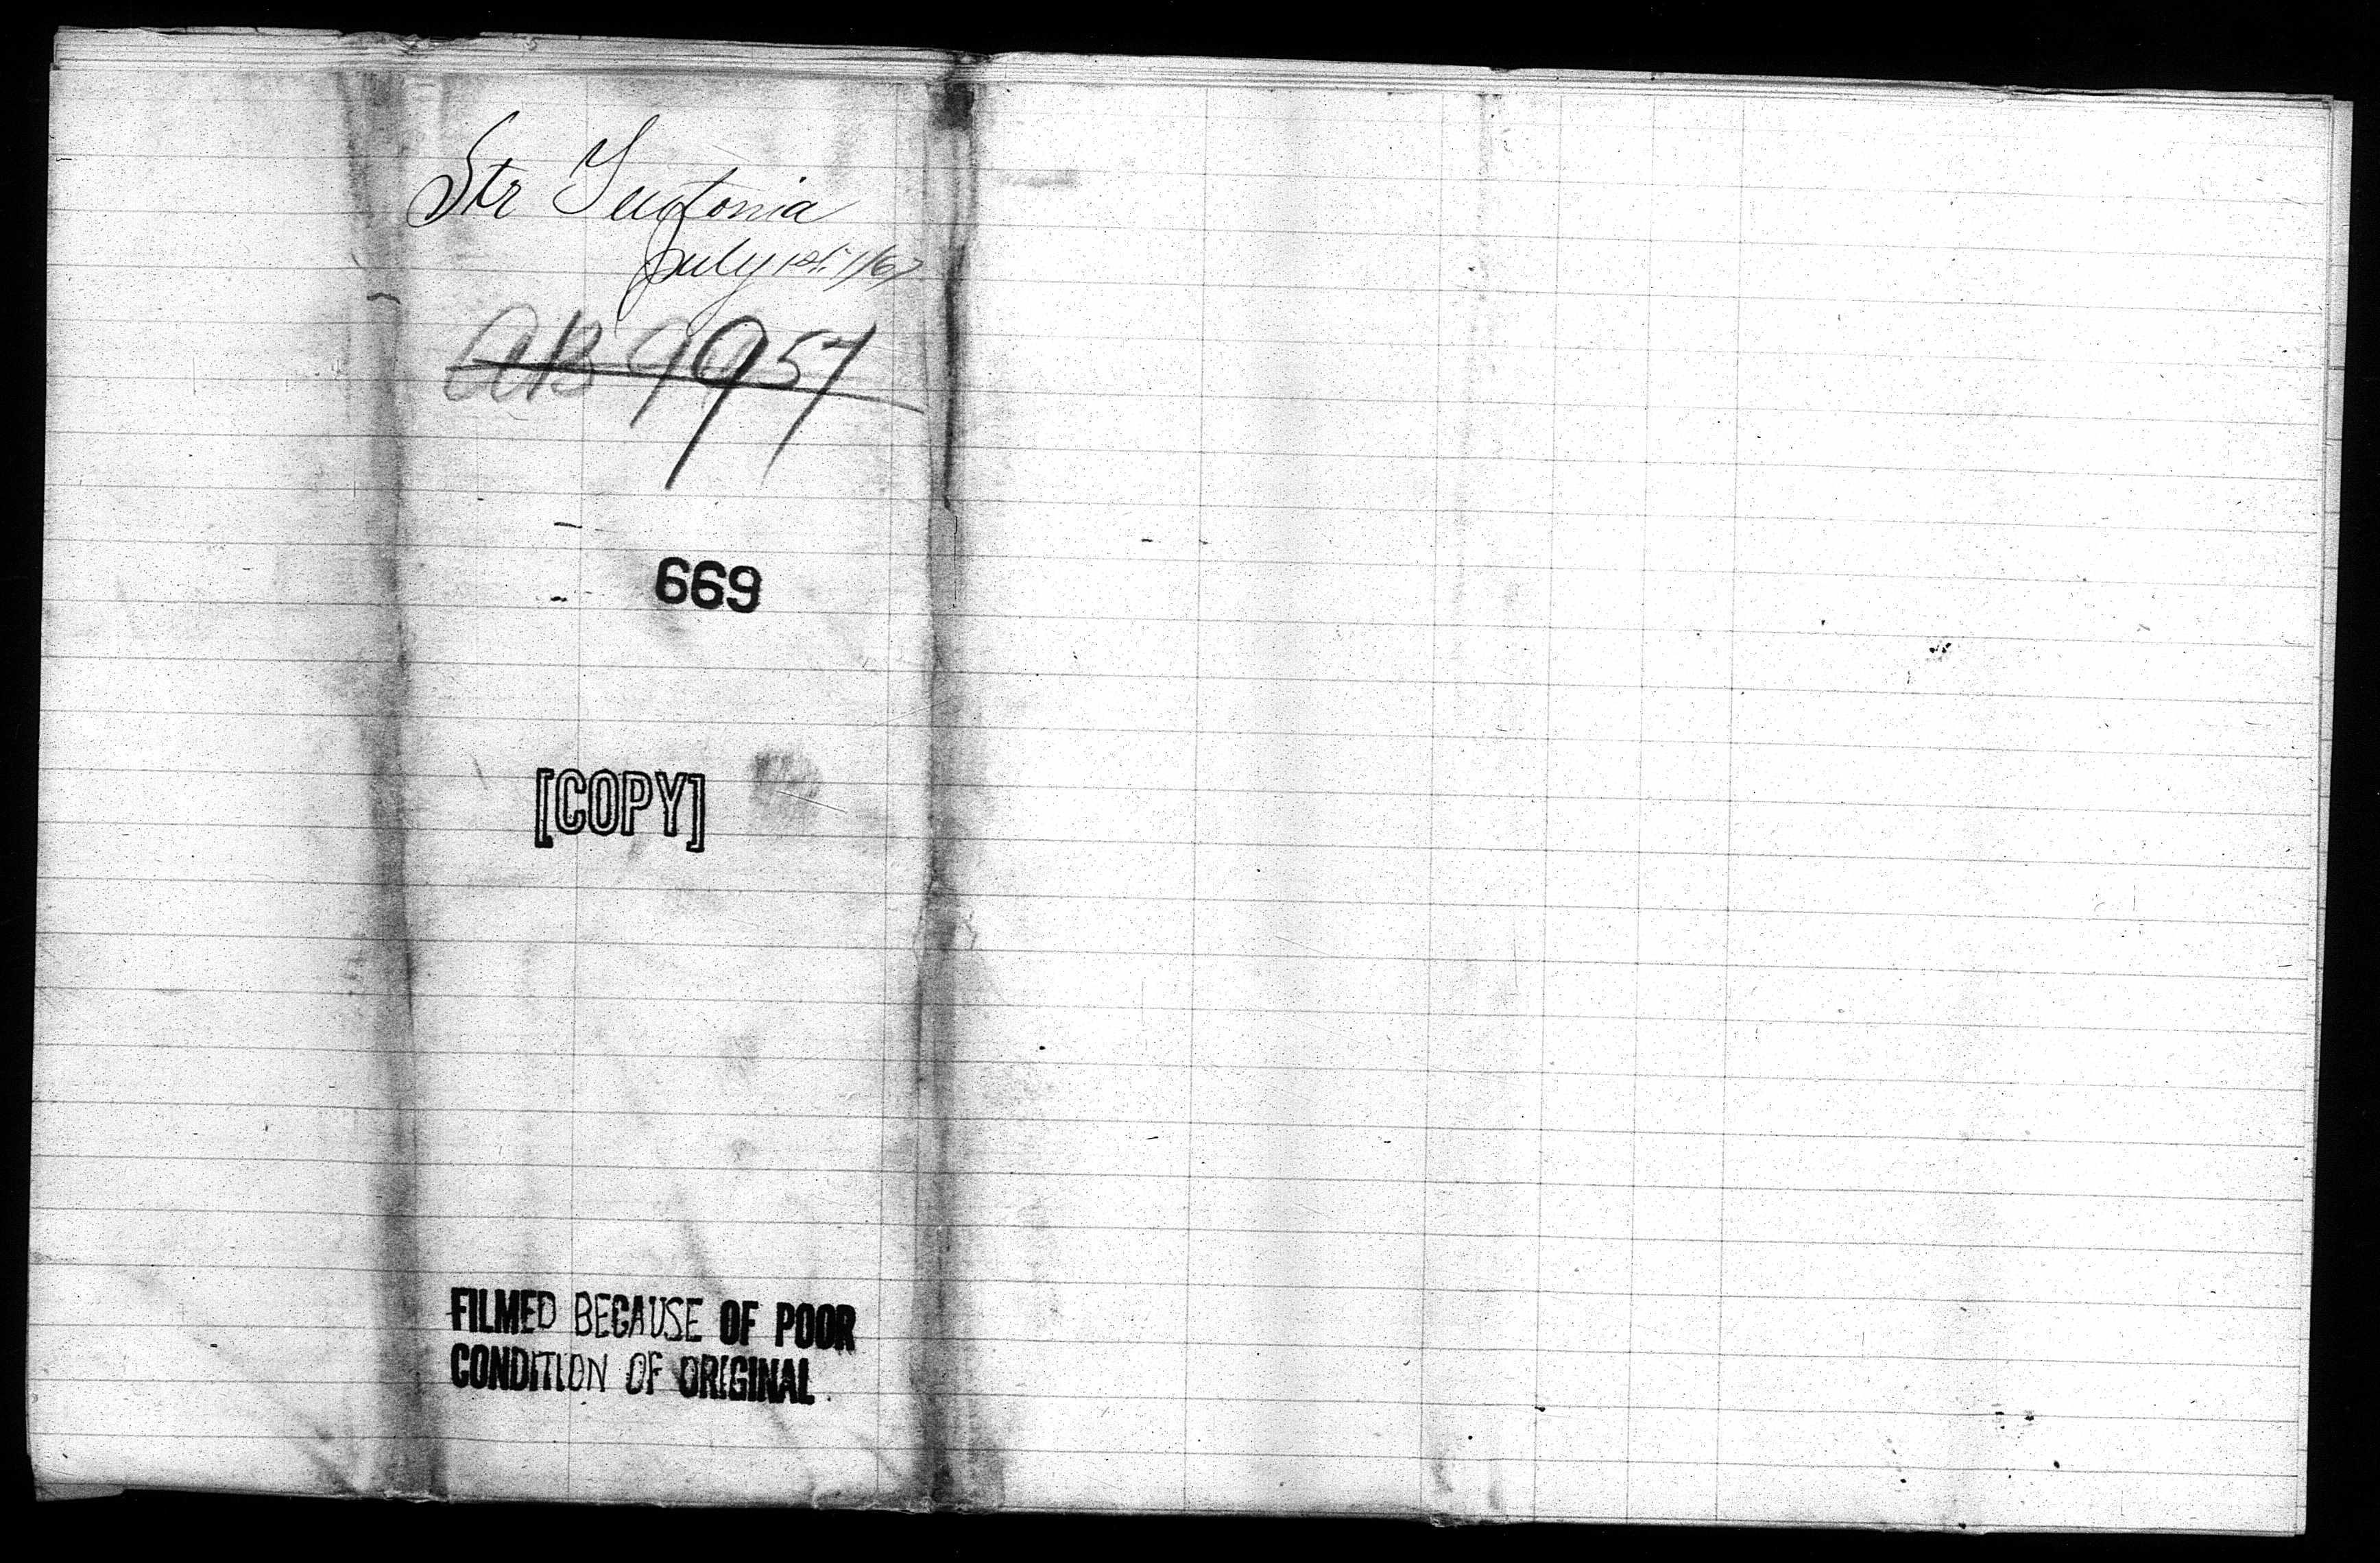 Str Teutonia
July 1st /67
AB 9957
669
[COPY]
FILMED BECAUSE OF POOR
CONDITION OF ORIGINAL